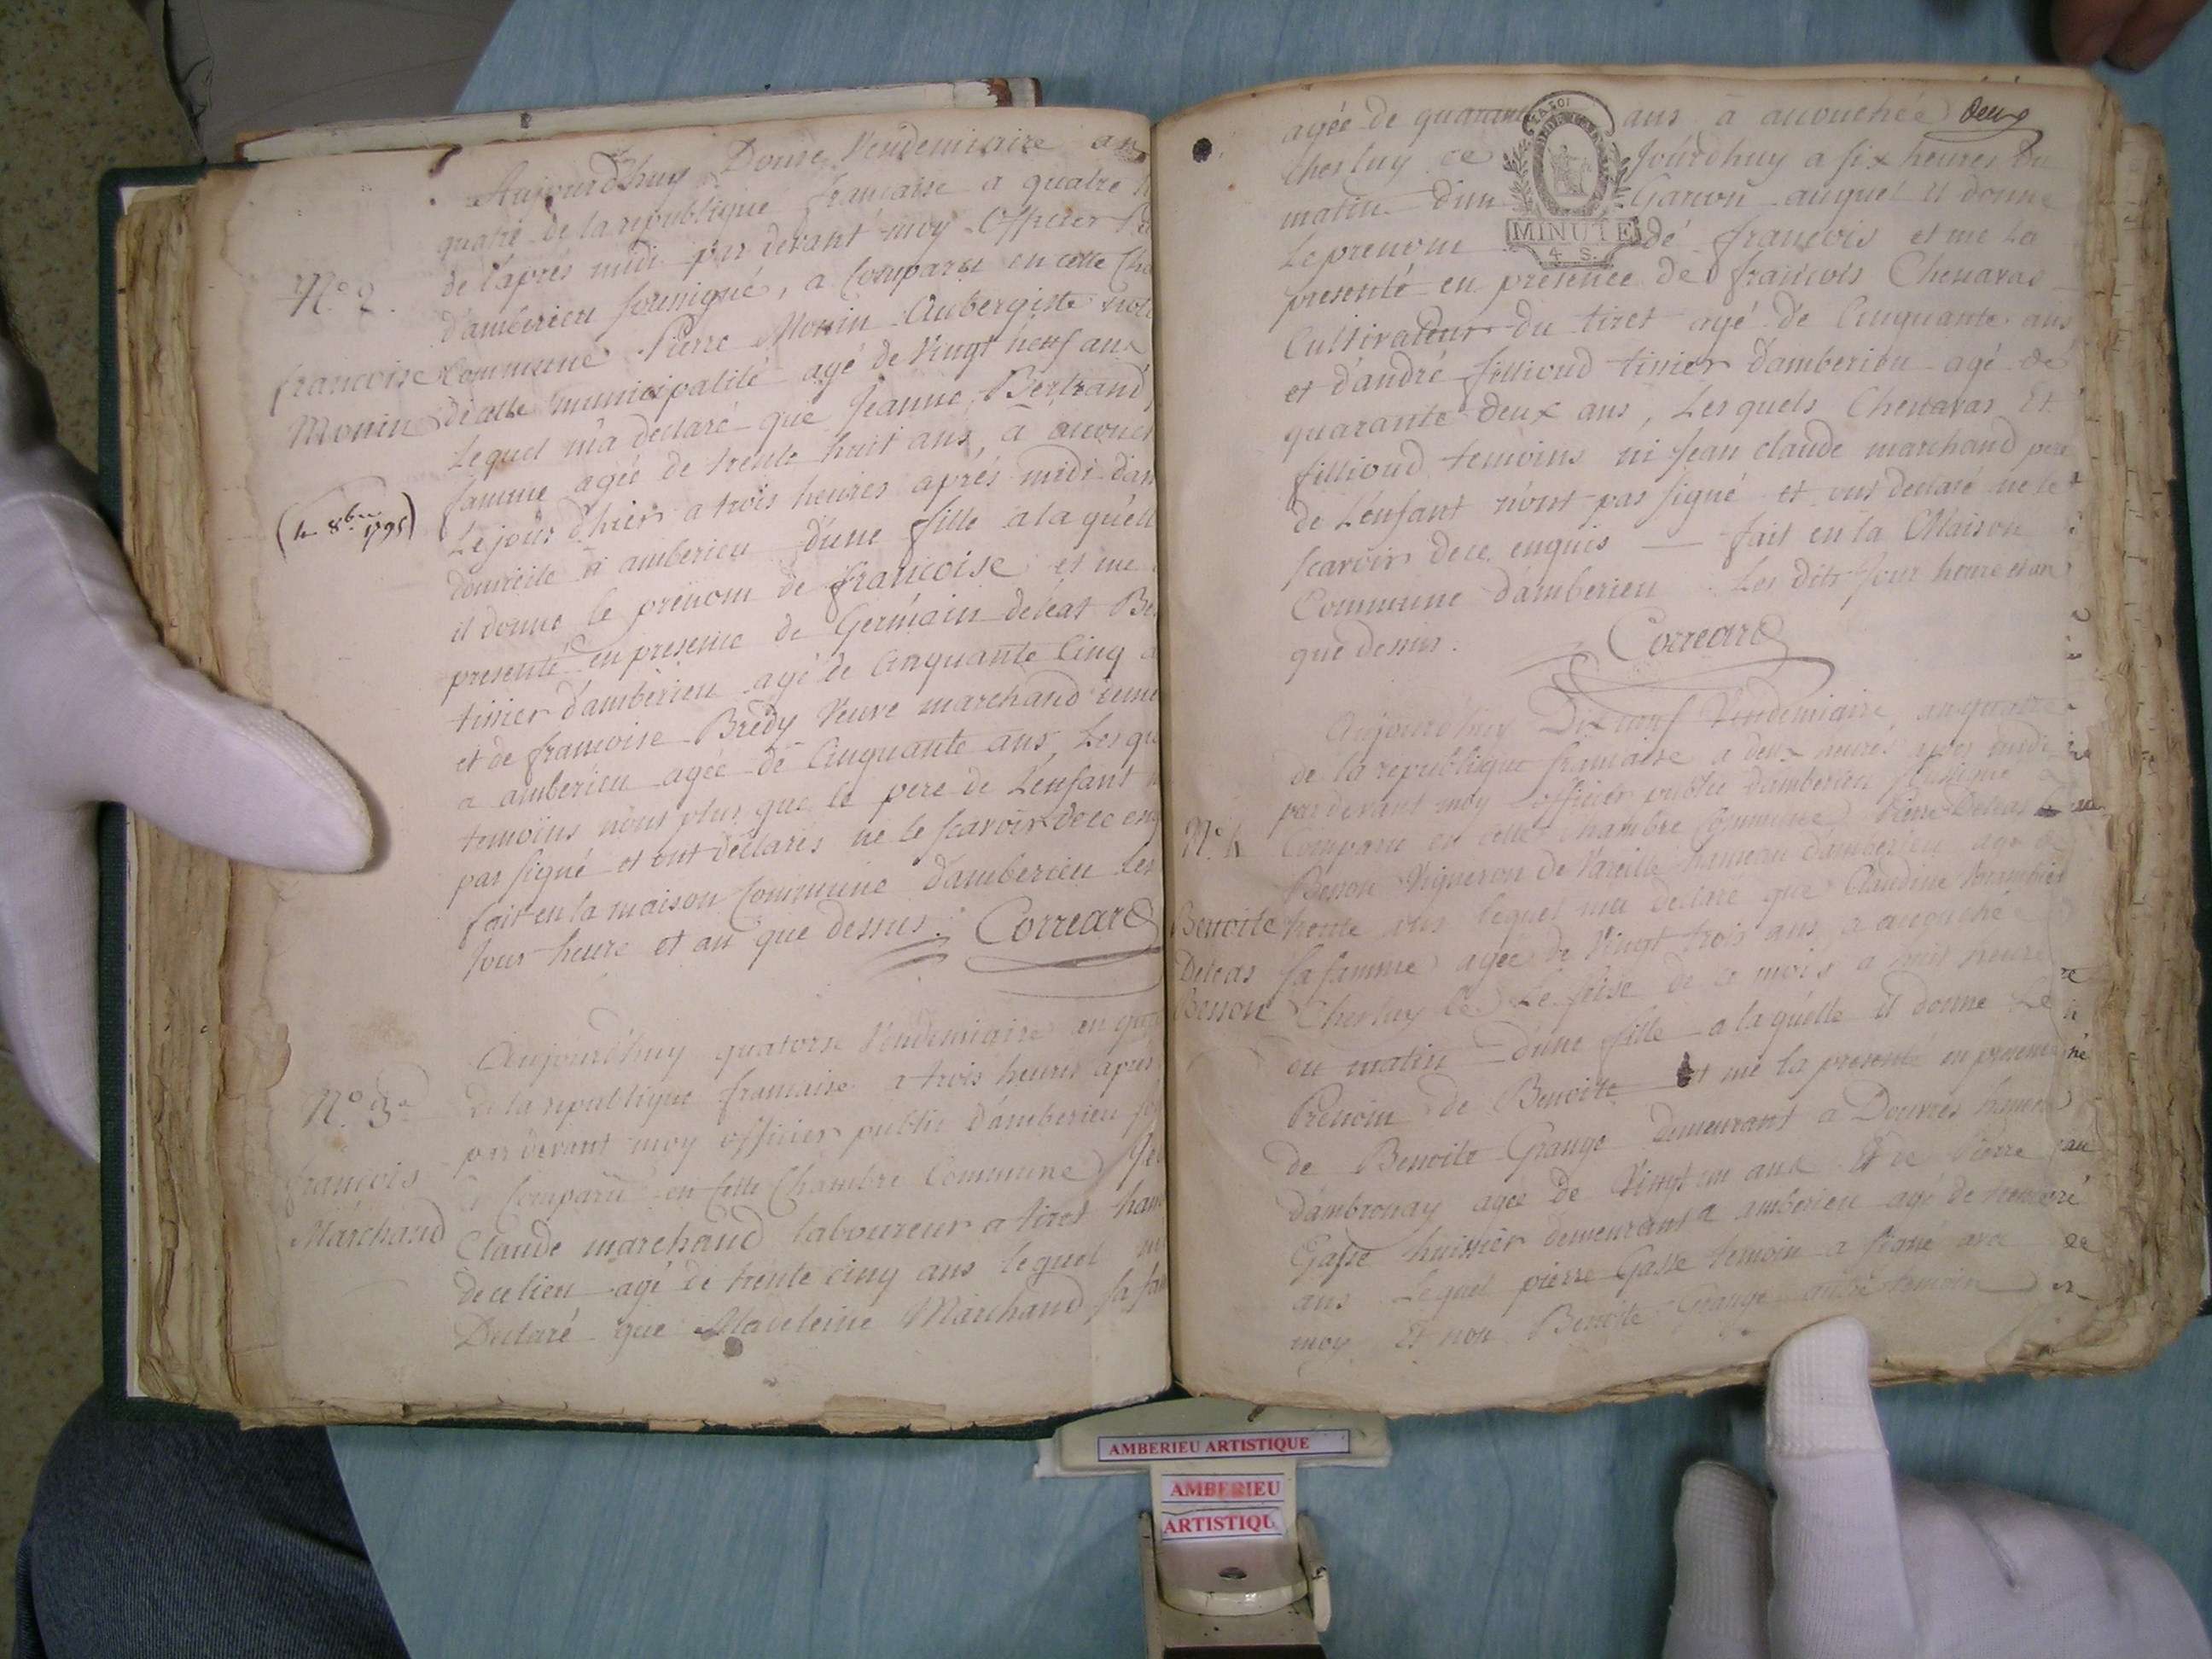 Aujourd'huy Douze Vendemiaire an
quatre de la republique francaise a quatre
de l'aprés midi par devant moy Officier
d'amberieu soussigné, a Comparu en cette
N.° 2.
Commune Pierre Monin Aubergiste
francoise
Monin
de cette municipalité agé de Vingt neuf ans
Lequel m'a declaré que Jeanne Bertrand
famme agée de trente huit ans, à
(4 8bre 1795)
Le jour d'hier a trois heures aprés midi
domicile à amberieu d'une fille a la
il donne le prénom de francoise et me
presenté en presence de Germain deleas
tissier d'amberieu agé de Cinquante Cinq
et de francoise Bredy Veuve marchand
a amberieu agée de Cinquante ans, Les
temoins non plus que le pere de L'enfant
par signé et ont déclarés ne le scavoir de ce
fait en la maison Commune d'amberieu Les
jour heure et an que dessus. Correard
Aujourd'huy quatorse Vendemiaire an
N.° 3.
de la republique francaise a trois heures aprés
par devant moy officier public d'amberieu
francois
Marchand
a Comparu en cette Chambre Commune
Claude marchand laboureur a tiret
de ce lieu agé de trente cinq ans lequel
Declaré que Madeleine Marchand sa
deux
agée de quarante ans à accouchée
Cher luy ce Jourdhuy a six heures du
matin d'un Garcon auquel il donne
Le prenom de francois et me La
MINUTE
4 S.
presenté en presence de francois Chenavas
Cultivateur du tiret agé de Cinquante ans
et d'andré fillioud tissier d'amberieu agé de
quarante deux ans, Lesquels Chenavas Et
fillioud temoins ni Jean claude marchand pere
de L'enfant n'ont pas signé et ont declaré ne le
scavoir de ce enquis — fait en la Maison
Commune d'amberieu Les dits Jour heure et an
que dessus. Correard
Aujourd'huy Dix neuf Vendemiaire an quatre
de la republique francaise a deux heures apres midi
par devant moy officier public d'amberieu soussigné a
N.° 4
Comparu en cette chambre Commune Pierre Deleas
Besson Vigneron de Vareille hameau d'amberieu agé de
Benoite
Deleas
Besson
trente ans lequel ma declaré que Claudine
sa famme agée de Vingt trois ans à accouché
Cher luy le Le seise de ce mois a huit heure
du matin d'une fille a la quelle il donne Le
Prenom de Benoite et me la presenté en presence
de Benoite Grange demeurant a Douvres hameau
d'ambronay agée de Vingt un ans Et de Pierre
Gasse huissier demeurant a amberieu agé de
ans Lequel pierre Gasse temoin a signé avec
moy Et non Benoite Grange autre temoin
AMBERIEU ARTISTIQUE
AMBERIEU
ARTISTIQU